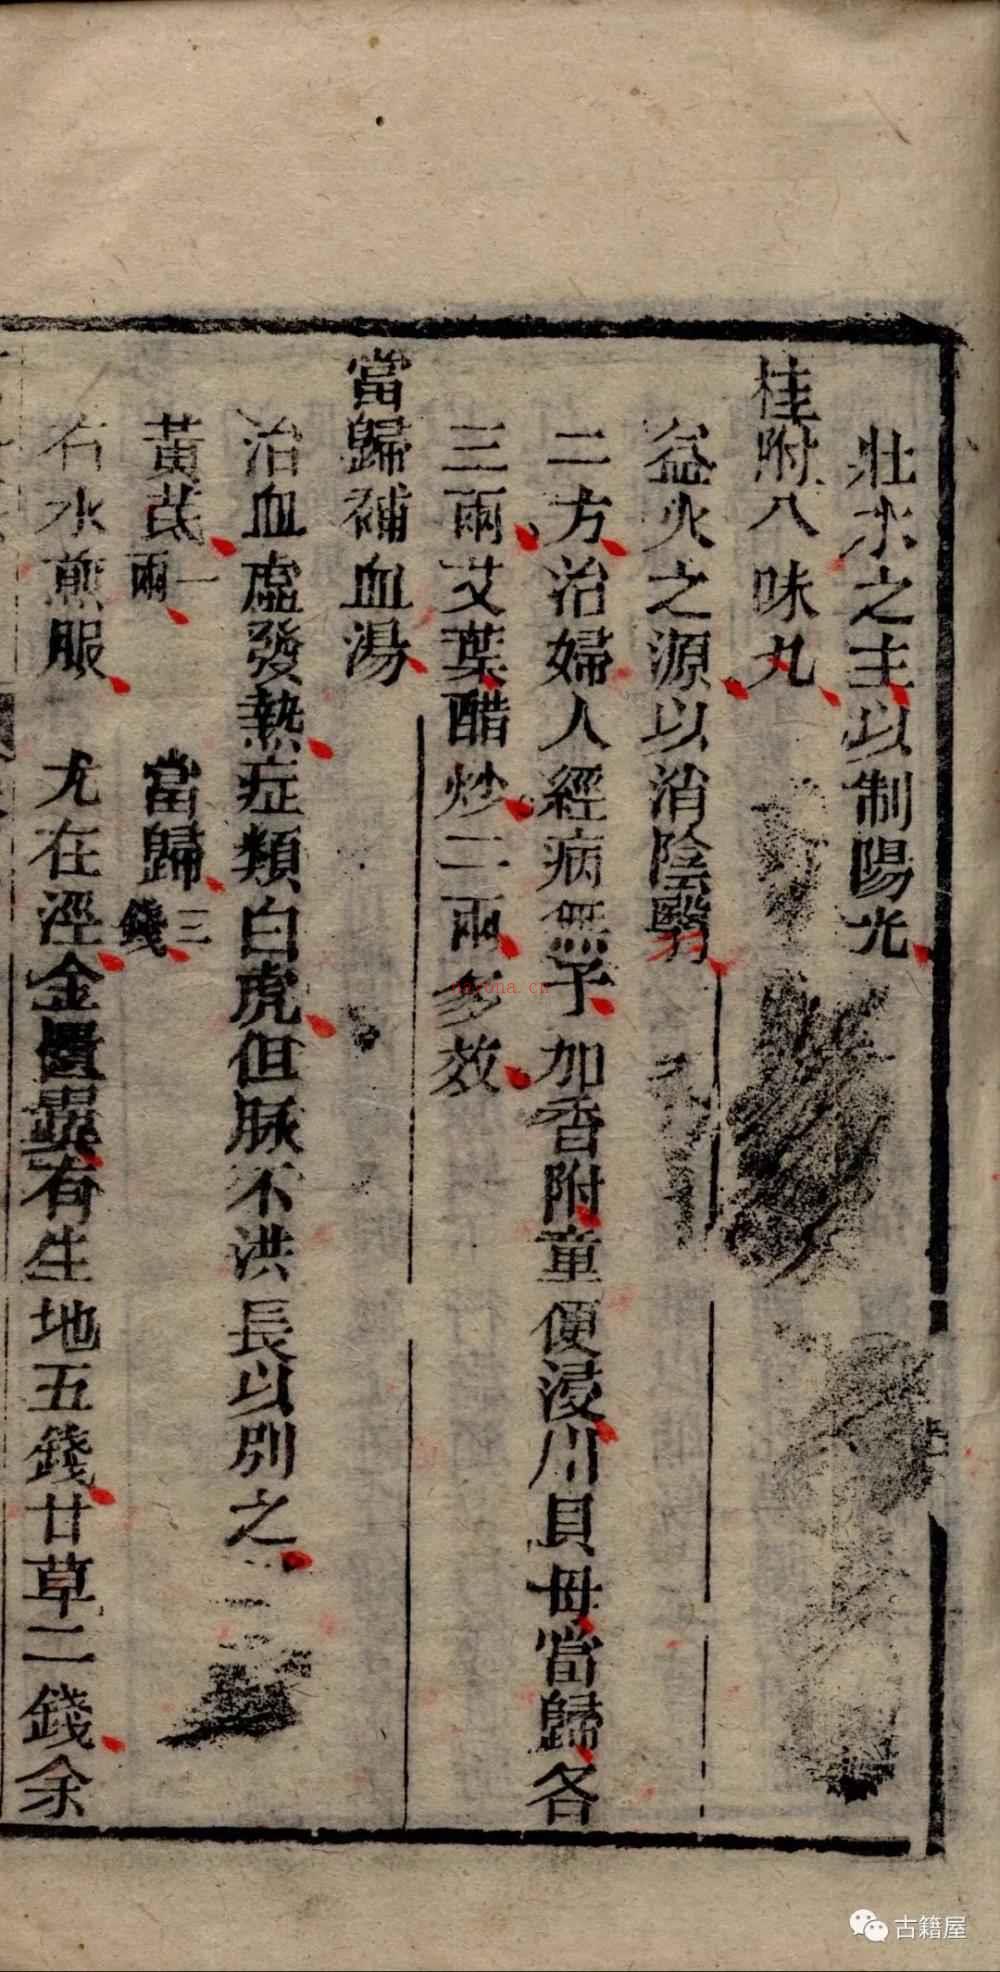 壯水之主以制陽光
桂附八味丸
益火之源以消陰翳
二方治婦人經病無子加香附童便浸川貝母當歸各
三兩艾葉醋炒二兩多效
當歸補血湯
治血虛發熱症類白虎但脉不洪長以別之
黃芪一兩 當歸三錢
右水煎服 尤在涇金匱翼有生地五錢甘草二錢余
nayona.cn
古籍屋